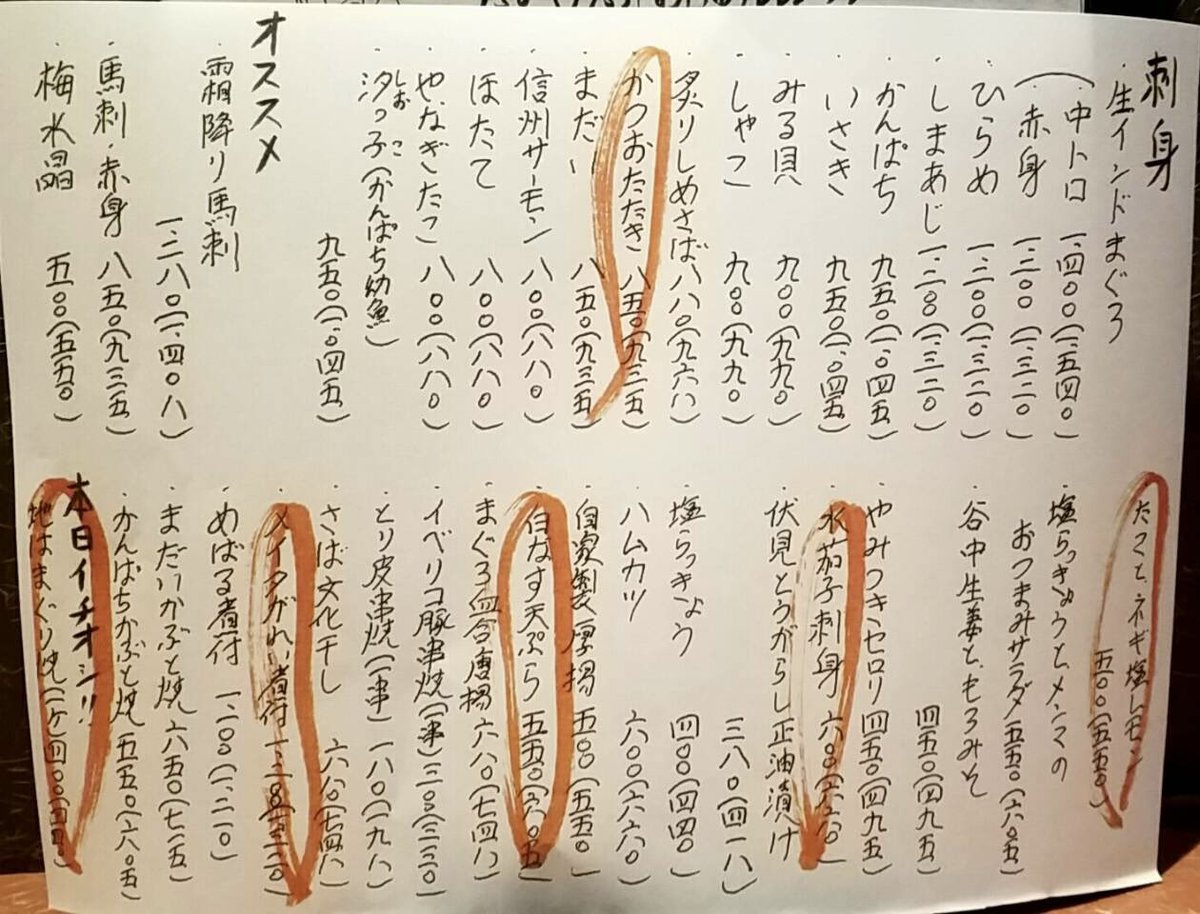 刺身
・生インドまぐろ
・中トロ 一、四〇〇(一、五四〇)
・赤身 一、二〇〇(一、三二〇)
・ひらめ 一、二〇〇(一、三二〇)
・しまあじ 一、二〇〇(一、三二〇)
・かんぱち 九五〇(一、〇四五)
・いさき 九五〇(一、〇四五)
・みる貝 九〇〇(九九〇)
・しゃこ 九〇〇(九九〇)
・炙りしめさば 八八〇(九六八)
・かつおたたき 八五〇(九三五)
・まだい 八五〇(九三五)
・信州サーモン 八〇〇(八八〇)
・ほたて 八〇〇(八八〇)
・やなぎたこ 八〇〇(八八〇)
・汐っ子(かんぱち幼魚)
しおこ
九五〇(一、〇四五)
オススメ
・霜降り馬刺
一、二八〇(一、四〇八)
・馬刺・赤身 八五〇(九三五)
・梅水晶 五〇〇(五五〇)
・たことネギ塩レモン
五〇〇(五五〇)
・塩らっきょうとメンマの
おつまみサラダ 五五〇(六〇五)
・谷中生姜ともろみそ
四五〇(四九五)
・やみつきセロリ 四五〇(四九五)
・水茄子刺身 六〇〇(六六〇)
・伏見とうがらし正油漬け
三八〇(四一八)
・塩らっきょう 四〇〇(四四〇)
・ハムカツ 六〇〇(六六〇)
・自家製厚揚 五〇〇(五五〇)
・白なす天ぷら 五五〇(六〇五)
・まぐろ血合唐揚 六八〇(七四八)
・イベリコ豚串焼(一串)三〇〇(三三〇)
・とり皮串焼(一串) 一八〇(一九八)
・さば文化干し 六八〇(七四八)
・メイタがれい煮付 一、二〇〇(一、三二〇)
・めばる煮付 一、一〇〇(一、二一〇)
・まだいかぶと焼 六五〇(七一五)
・かんぱちかぶと焼 五五〇(六〇五)
本日イチオシ!!
・地はまぐり焼(一ヶ)四〇〇(四四〇)